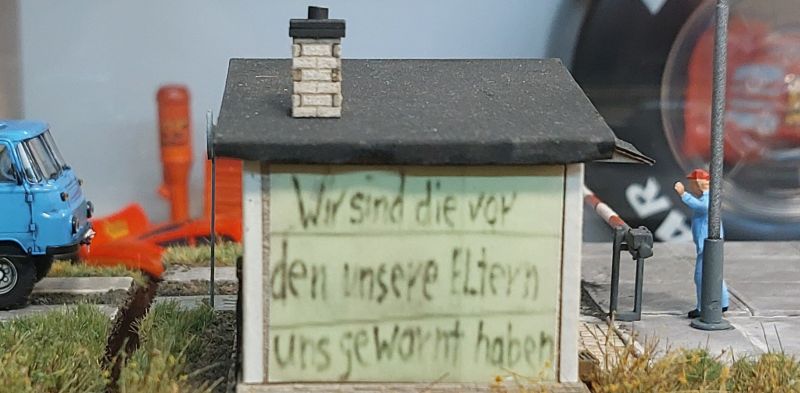 Wir sind die vor
den unsere Eltern
uns gewarnt haben
AR